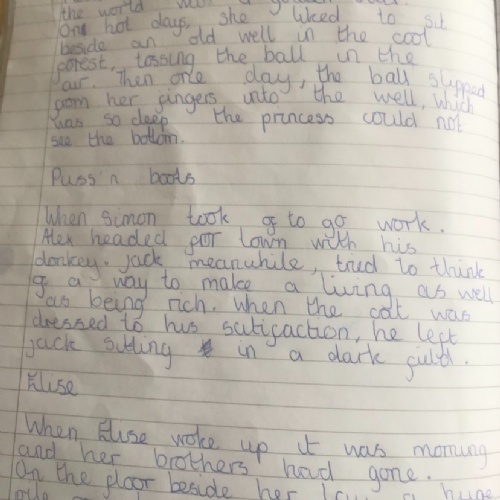 the world was a golden
On hot days, she liked to sit
beside an old well in the cool
forest, tossing the ball in the
air. Then one day, the ball slipped
from her fingers into the well, which
was so deep the princess could not
see the bottom.
Puss 'n boots
When Simon took of to go work.
Alex headed for town with his
donkey. Jack meanwhile, tried to think
of a way to make a living as well
as being rich. When the cat was
dressed to his satifaction, he left
Jack sitting in a dark field.
Elise
When Elise woke up it was morning
and her brothers had gone.
On the floor beside her a huge